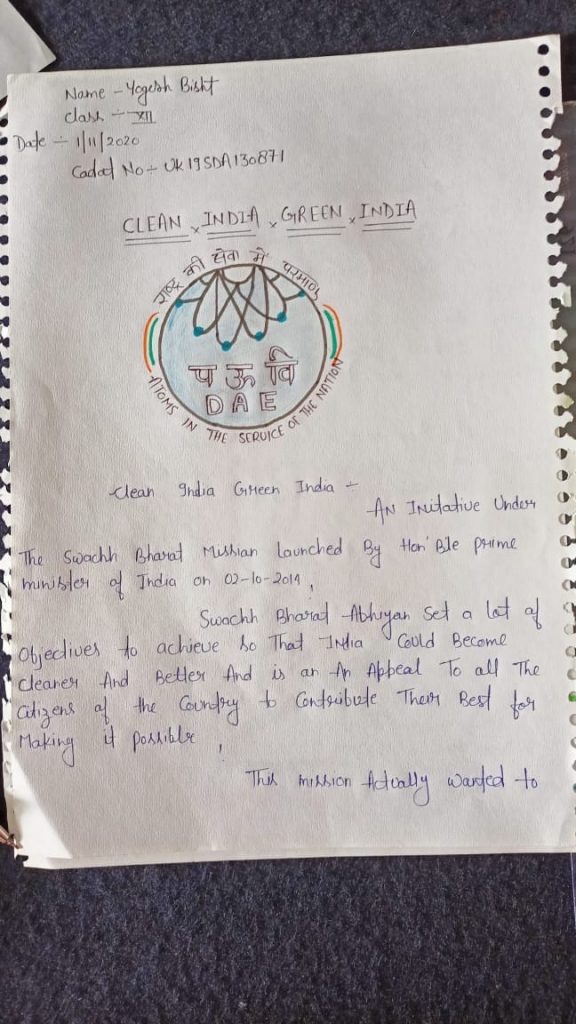 Name - Yogesh Bisht
Class ÷ XII
Date ÷ 1/11/2020
Cadat No ÷ UK19SDA130871
CLEAN x INDIA x GREEN x INDIA
राष्ट्र की सेवा में परमाणु
प ऊ वि
DAE
ATOMS IN THE SERVICE OF THE NATION
Clean India Green India -
AN Initative Under
The Swachh Bharat Mission Launched By Hon'Ble prime
minister of India on 02-10-2014,
Swachh Bharat Abhiyan Set a lot of
Objectives to achieve so That India Could Become
Cleaner And Better And is an An Appeal To all The
Citizens of the Country to Contribute Their Best for
Making it possible,
This mission Actually wanted to